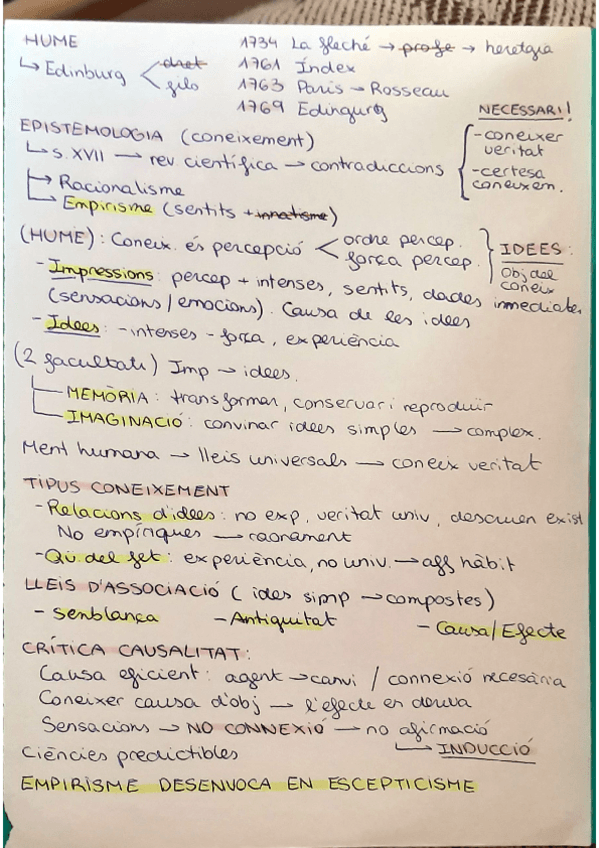 HUME
↳ Edinburg < dret
filo
1734 La fleché → profe → heretgia
1761 Índex
1763 Paris → Rosseau
1769 Edingurg
NECESSARI!
- coneixer veritat
- certesa coneixem.
EPISTEMOLOGIA (coneixement)
↳ s. XVII → rev. científica → contradiccions
↳ Racionalisme
↳ Empirisme (sentits + innatisme)
(HUME): Coneix. és percepció < ordre percep.
força percep.
IDEES:
Obj del coneix
- Impressions: percep + intenses, sentits, dades immediates
(sensacions/emocions). Causa de les idees
- Idees: - intenses - força, experiència
(2 facultats) Imp → idees.
MEMÒRIA: transformar, conservar i reproduir
IMAGINACIÓ: convinar idees simples → complex.
Ment humana → lleis universals → coneix veritat
TIPUS CONEIXEMENT
- Relacions d'idees: no exp, veritat univ, descriuen exist
No empíriques → raonament
- Qü. del fet: experiència, no univ. → aff hàbit
LLEIS D'ASSOCIACIÓ (ides simp → compostes)
- Senblança - Antiguitat - Causa/Efecte
CRÍTICA CAUSALITAT:
Causa eficient: agent → canvi / connexió necesària
Coneixer causa d'obj → l'efecte en deriva
Sensacions → NO CONNEXIÓ → no afirmació
↳ INDUCCIÓ
Ciències predictibles
EMPIRISME DESENVOCA EN ESCEPTICISME